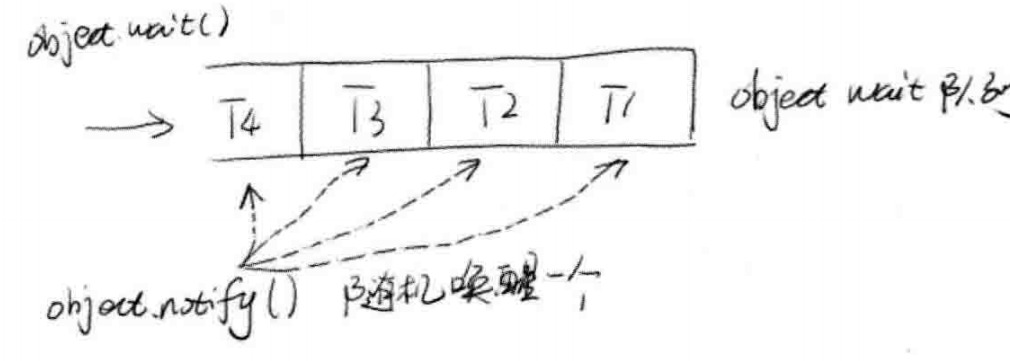 object.wait()
T4 T3 T2 T1
object wait 队列
object.notify() 随机唤醒一个